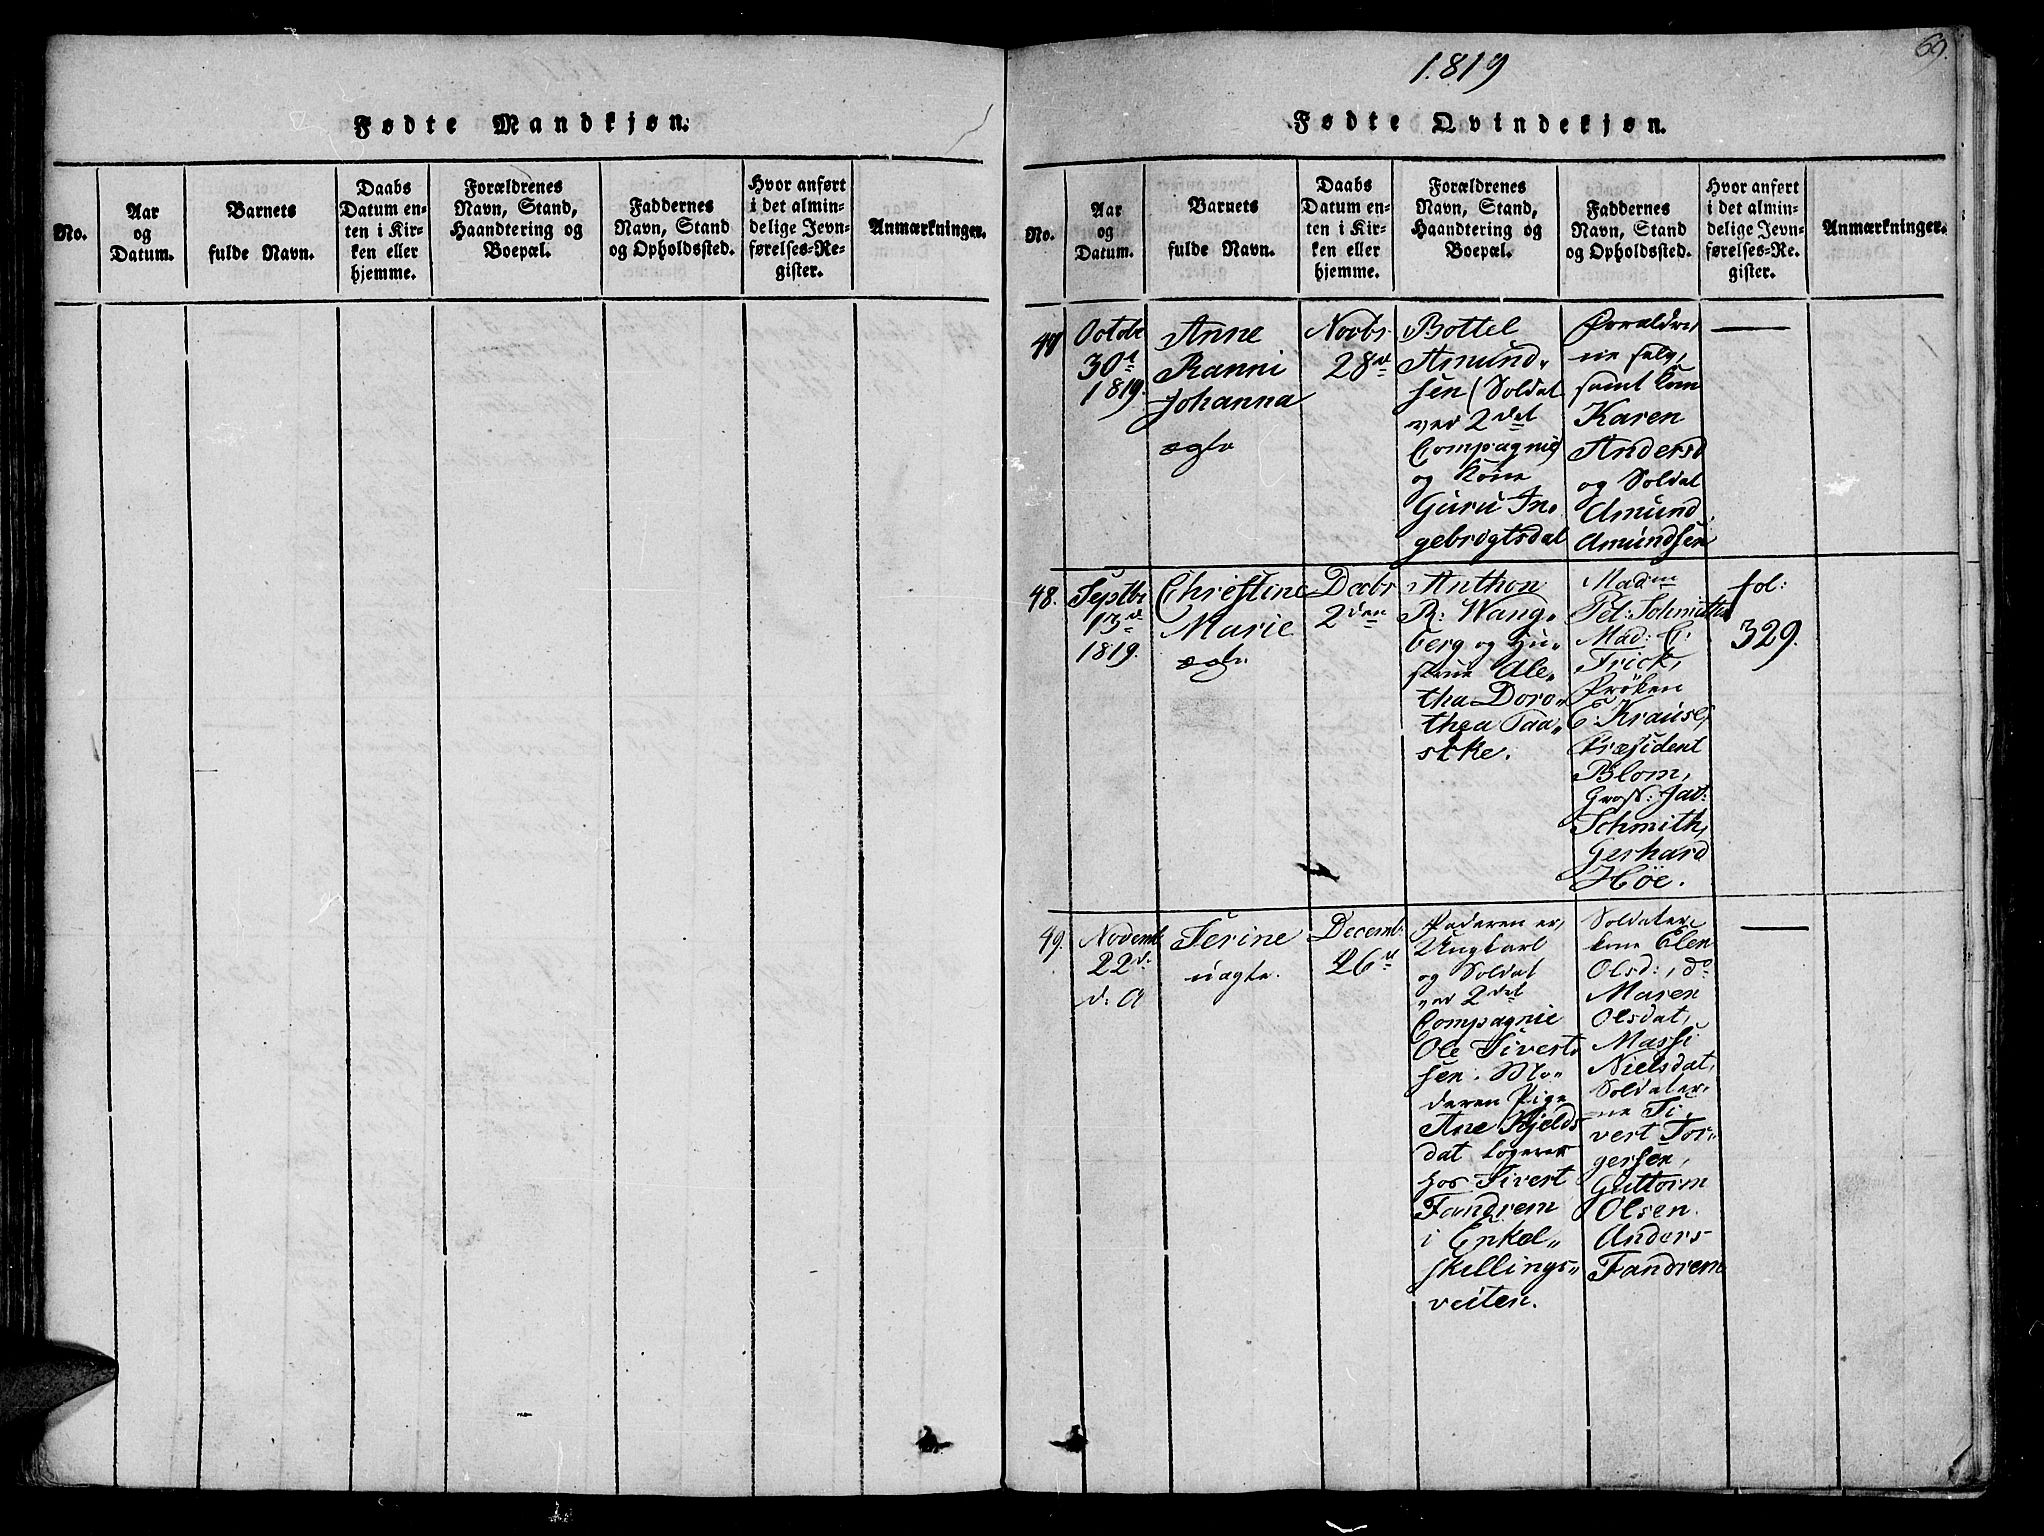 Fødte Mandkjøn.
No.
Aar
og
Datum.
Barnets
fulde Navn.
Daabs
Datum en-
ten i Kir-
ken eller
hjemme.
Forældrenes
Navn, Stand,
Haandtering og
Boepæl.
Faddernes
Navn, Stand
og Opholdssted.
Hvor anført
i det almin-
delige Jevn-
førelses-Re-
gister.
Anmærkninger.
69.
1819
Fødte Qvindekjøn.
No.
Aar
og
Datum.
Barnets
fulde Navn.
Daabs
Datum en-
ten i Kir-
ken eller
hjemme.
Forældrenes
Navn, Stand,
Haandtering og
Boepæl.
Faddernes
Navn, Stand
og Opholdssted.
Hvor anført
i det almin-
delige Jevn-
førelses-Re-
gister.
Anmærkninger.
47
Octobr
30d
1819.
Anne
Ranni
Johanna
ægte
Novbr
28d
Bottel
Amund-
sen (Soldat
ved 2det
Compagnie)
og Kone
Guru In-
gebrigtsdat
Forældre,
ne selv,
samt Kone
Karen
Andersd
og Soldat
Amund
Amundsen
48.
Septbr
13d
1819.
Christine
Marie
ægte
Decbr
2den
Anthon
R: Wang-
berg og Hu-
strue Ale-
tha Doro-
thea Paa-
ske.
Madm
Pet: Schmith
Mad: C.
Frick,
Frøken
C: Krause,
Præsident
Blom,
Gross: Jac:
Schmith,
Gerhard
Høe.
fol:
329.
49.
Novemb
22d:
d: A
Serine
uægte.
Decemb.
26d
Faderen er,
Ungkarl
og Soldat
ved 2det
Compagnie
Ole Siverts
sen. Mo-
deren Pige
Ane Kjelds
dat logerer
hos Sivert
Fandrem
i Enkel-
skellings-
veiten.
Soldater
kone Elen
Olsd:, do
Maren
Olsdat,
Massi
Nielsdat,
Soldater-
ne Si-
vert Tor-
gersen,
Guttorm
Olsen.
Anders
Fandrem